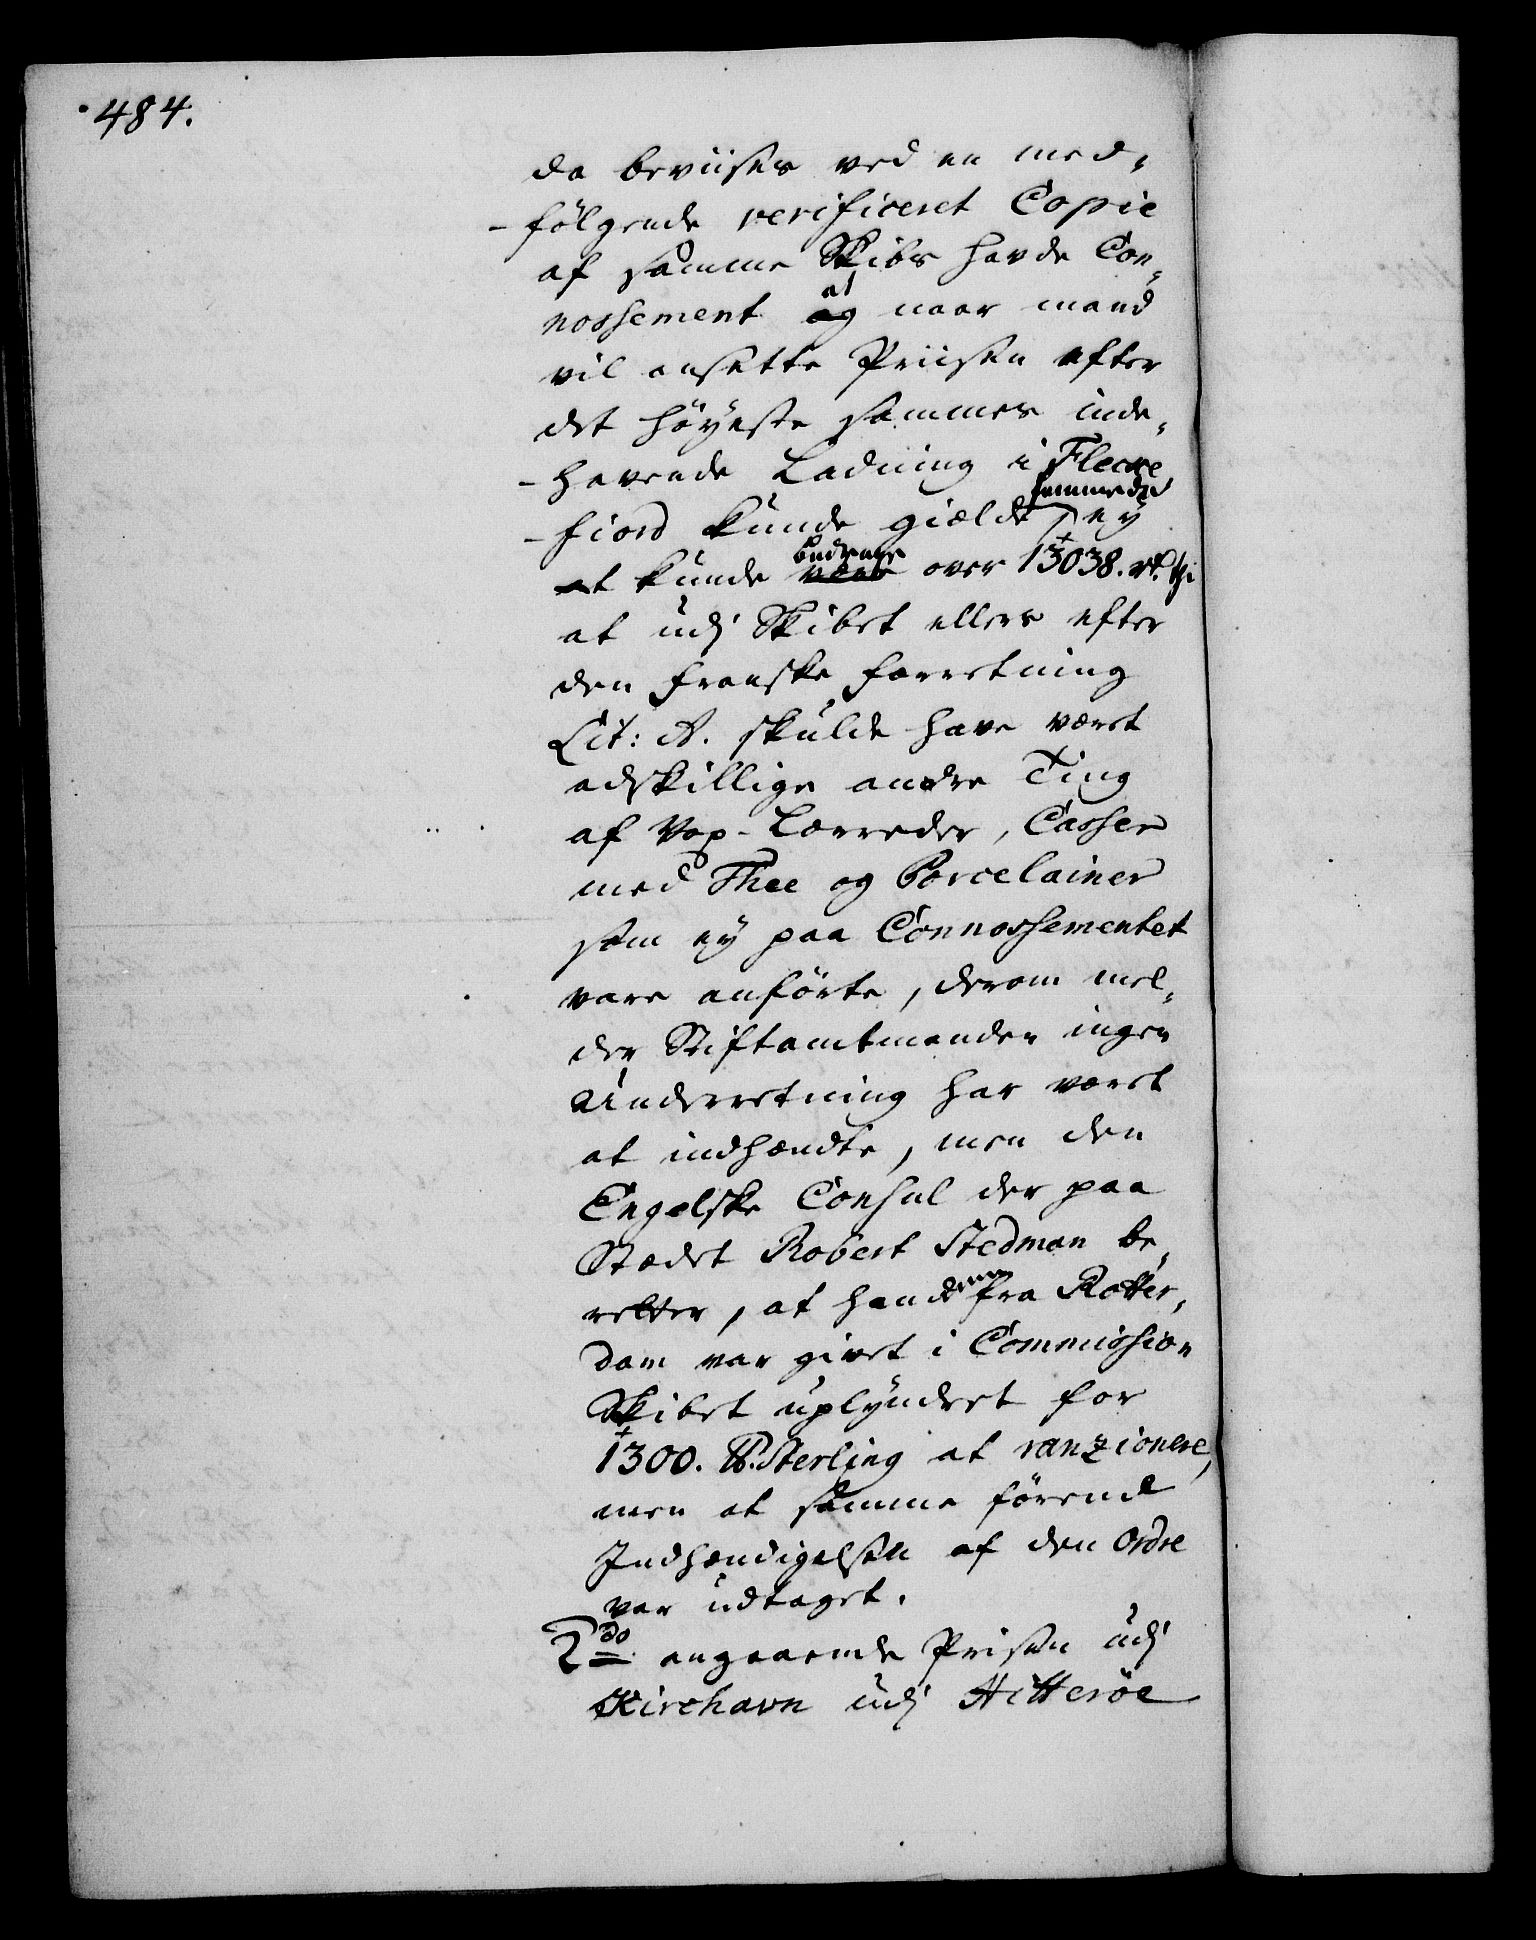 484.
da beviises ved en med-
-fölgende verificeret Copie
af samme Skibs havde Con-
nossement at og naar mand
vil ansette Priisen efter
det höyeste sammes inde-
-havende Ladning i Flecke
-fiord kunde gielde, summe det ey
at kunde bedrage være over 13038. rd. thi
at udj Skibet ellers efter
den franske forretning
Lit: A. skulde have været
adskillige andre Ting
af Vox-Lærreder, Casser
med Thee og Porcelainer
som ey paa Connossementet
vare anförte, derom mel-
der Stiftamtmanden ingen
Underretning har været
at indhændte, men den
Engelske Consul der paa
Stædet Robert Stedman be-
retter, at hand fra Rotter-
dam var givet i Commission
Skibet uplyndret for
1300. lb. Sterling at ranzionere,
men at samme förend
Indhændigelsen af den Ordre
var udtaget.
2do angaaende Prisen udj
Kirchavn udj Hitteröe